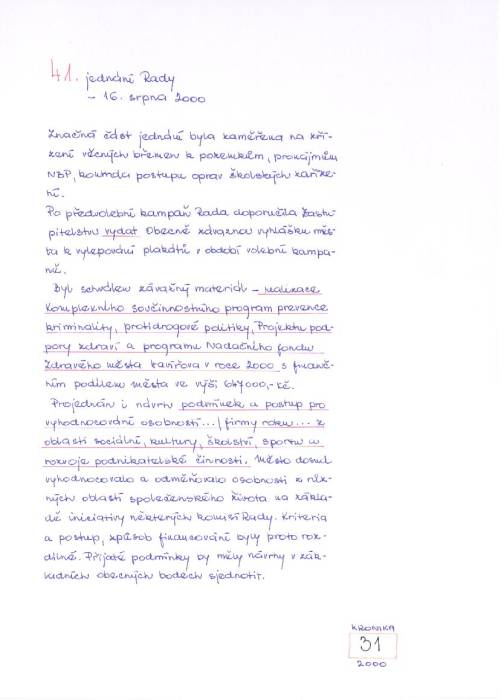 41. jednání Rady
- 16. srpna 2000
Značná část jednání byla zaměřena na zří-
zení věcných břemen k pozemkům, pronájmům
NBP, kontrola postupu oprav školských zaříze-
ní.
Po předvolební kampaň Rada doporučila Zastu
pitelstvu vydat Obecně závaznou vyhlášku měs-
ta k vylepování plakátů v období volební kampa-
ně.
Byl schválen závažný materiál - realizace
Komplexního součinnostního program prevence
kriminality, protidrogové politiky, Projektu pod-
pory zdraví a programu Nadačního fondu
Zdravého města Karviná v roce 2000 s finanč-
ním podílem města ve výši 647000,-kč.
Projednán i návrh podmínek a postup pro
vyhodnocování osobností.../firmy roku... z
oblasti sociální, kultury, školství, sportu a
rozvoje podnikatelské činnosti. Město dosud
vyhodnocovalo a odměňovalo osobnosti z růz-
ných oblastí společenského života na zákla-
dě iniciativy některých komisí Rady. Kriteria
a postup, způsob financování byly proto roz-
dílné. Přijaté podmínky by měly návrhy v zák-
ladních obecných bodech sjednotit.
KRONIKA
31
2000